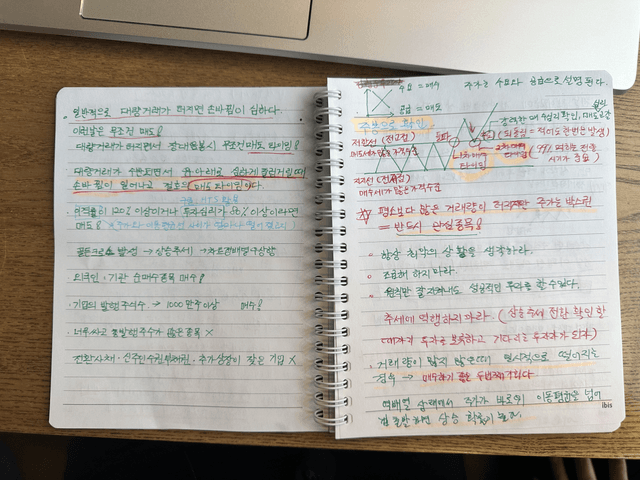 일반적으로 대량거래가 터지면 손바뀜이 심하다.
이런날은 무조건 매도!
대량거래가 터지면서 장대음봉시 무조건 매도 타이밍!
대량거래가 수반되면서 위 아래로 심하게 흔들거릴때
손바뀜이 일어나고 절호의 매도 타이밍이다.
이격률이 120% 이상이거나 투자심리가 80% 이상이라면
매도!
골든크로스 발생 → 상승추세 → 차트정배열 구상함
외국인·기관 순매수종목 매수!
·기업의 발행주식수 → 1000만주이상 매수!
·너무싸고 총발행주수가 많은종목 X
전환사채·신주인수권부채권·주가상장이 잦은 기업 X
수요 = 매수 주가는 수요와 공급으로 설명 된다.
공급 = 매도
저항선 (전고점)
돌파
매도세가 많은 가격수준
1차 매수 타이밍
2차 매수 타이밍
강력한 매수심리 확인, 매도물량
(되돌림은 적어도 한번은 발생)
지지선 (전저점)
매수세가 많은 가격수준
평소보다 많은 거래량이 터지지만 주가는 박스권
= 반드시 관심종목!
· 항상 최악의 상황을 생각하라.
· 조급해 하지마라.
· 원칙만 잘 지켜내도 성공적인 투자를 할 수 있다.
추세에 역행하지마라. (상승추세 전환 확인 한
대까지 투자는 보류하고 기다리는 투자자가 되자)
· 거래량이 많지 않은데 일시적으로 떨어지는
점수 → 매수하기 좋은 두번째 자리다.
역배열 상태에서 주가가 바로위 이동평균을 넘어
설 경우 상승 확률이 높다.
Ibis